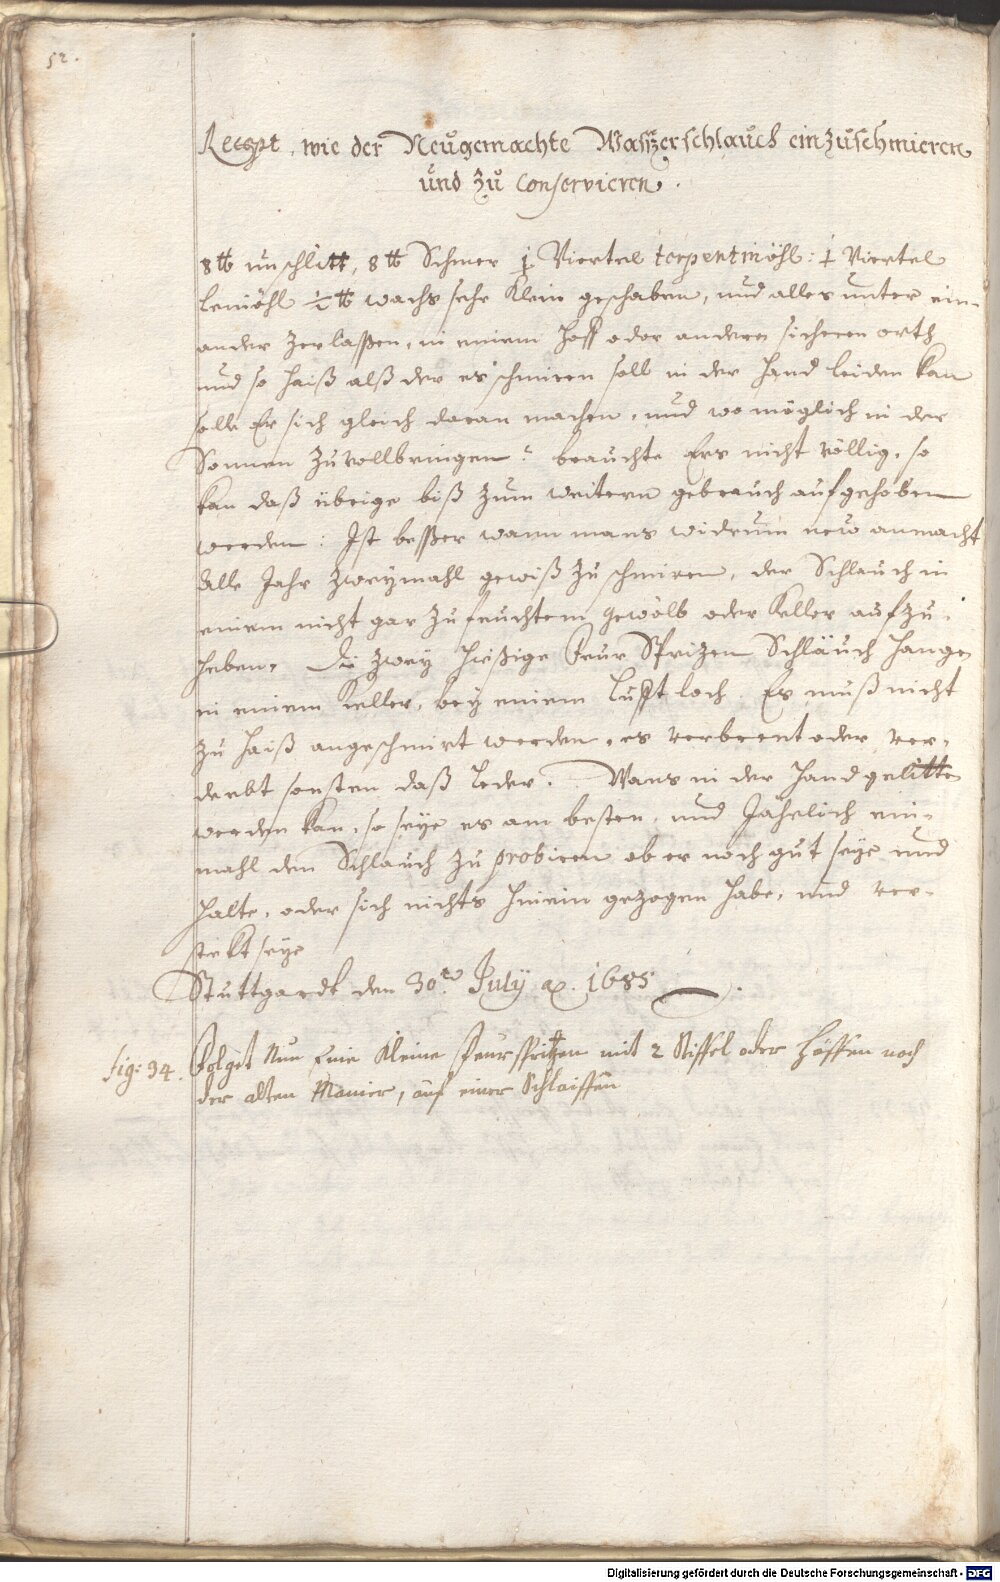 52.
Recept, wie der Neugemachte Wasserschlauch einzuschmieren
und zu Conservieren.
8 ℔ unschlitt, 8 ℔ Schmer 1 Viertel terpentinöhl: 1 Viertel
leinöhl ½ ℔ wachs sehr klein geschaben, und alles unter ein-
ander zerlassen, in einem Hoff oder andern sicheren orth,
und so haiß alß der es schmiren soll in der hand leiden kan
solle Er sich gleich daran machen, und wo möglich in der
Sonnen zuvollbringen: brauchte Ers nicht völlig, so
kan daß übrige biß zum weitern gebrauch aufgehoben
werden: Ist besser wann mans widrum new anmacht
Alle Jahr zweymahl gewiß zu schmiren, der Schlauch in
einem nicht gar zu feuchtem gewölb oder Keller aufzu-
heben, Die zwey hießige Feur Sprizen Schläuch hangen
in einem Keller, bey einem lufft loch. Es muß nicht
zu haiß angeschmirt werden, es verbrent oder ver-
derbt sonsten daß leder. Wans in der hand gelitten
werden kan, so seye es am besten, und Jährlich ein-
mahl den Schlauch zu probiren ob er noch gut seye und
halte, oder sich nichts hinein gezogen habe, und ver-
stekt seye
Stuttgardt den 30ten July a. 1685.
fig: 34. Folget Nun Eine Kleine feurspritzen mit 2 Stiffel oder Häffen noch
der alten Manier, auf einer Schlaiffen
Digitalisierung gefördert durch die Deutsche Forschungsgemeinschaft - DFG